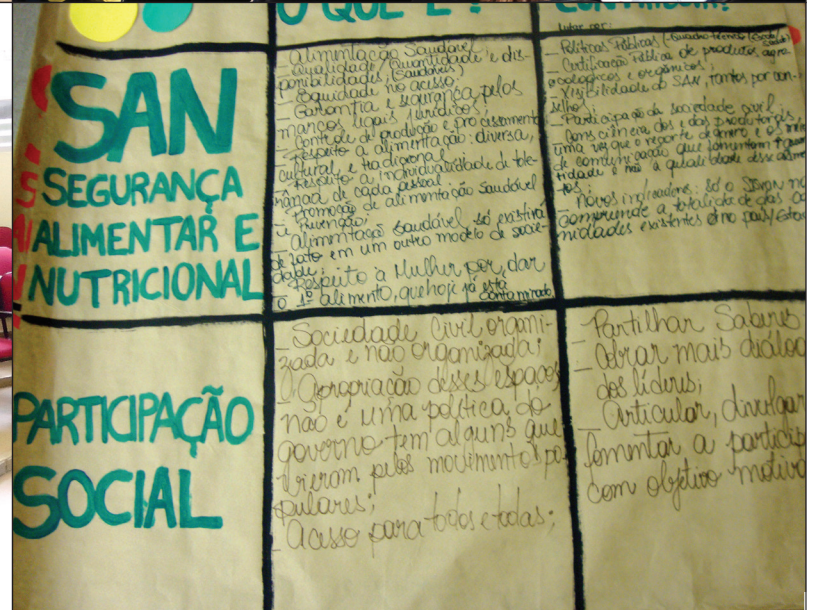 O QUE É?
SAN
SEGURANÇA
ALIMENTAR E
NUTRICIONAL
- Alimentação Saudável:
Qualidade, Quantidade, e dis-
ponibilidades, (Saudáveis)
- Equidade no acesso;
- Garantia e segurança pelos
marcos legais/jurídicos;
- Controle de produção e processamento
- Respeito a alimentação: diversa,
cultural, e tradicional
- Respeito a individualidade de tole-
rância de cada pessoal.
- Promoção de alimentação saudável
e Prevenção;
- Alimentação saudável só existirá
de fato em um outro modelo de socie-
dade;
- Respeito à Mulher por, dar
o 1º alimento, que hoje já está
contaminado
Lutar por:
- Políticas Públicas
- Certificação Pública de produtos agro
ecológicos e orgânicos;
- Visibilidade do SAN, tantos por con-
selhos;
- Participação da sociedade civil
- Consciência dos e das produtoras,
uma vez que o
de comunicação que fomentam a
tidade e não a qualidade desse alimen
tos;
- Novos indicadores: Só o
compreende a totalidade das
nidades existentes no país/
PARTICIPAÇÃO
SOCIAL
- Sociedade Civil organi-
zada e não organizada;
- Apropriação desses espaços
não é uma política do
governo tem alguns que
vieram pelos movimentos po
pulares;
- Acesso para todos e todas;
- Partilhar Saberes
- Cobrar mais diálog
dos líderes;
- Articular, divulgar
fomentar a particip
com objetivo motiva